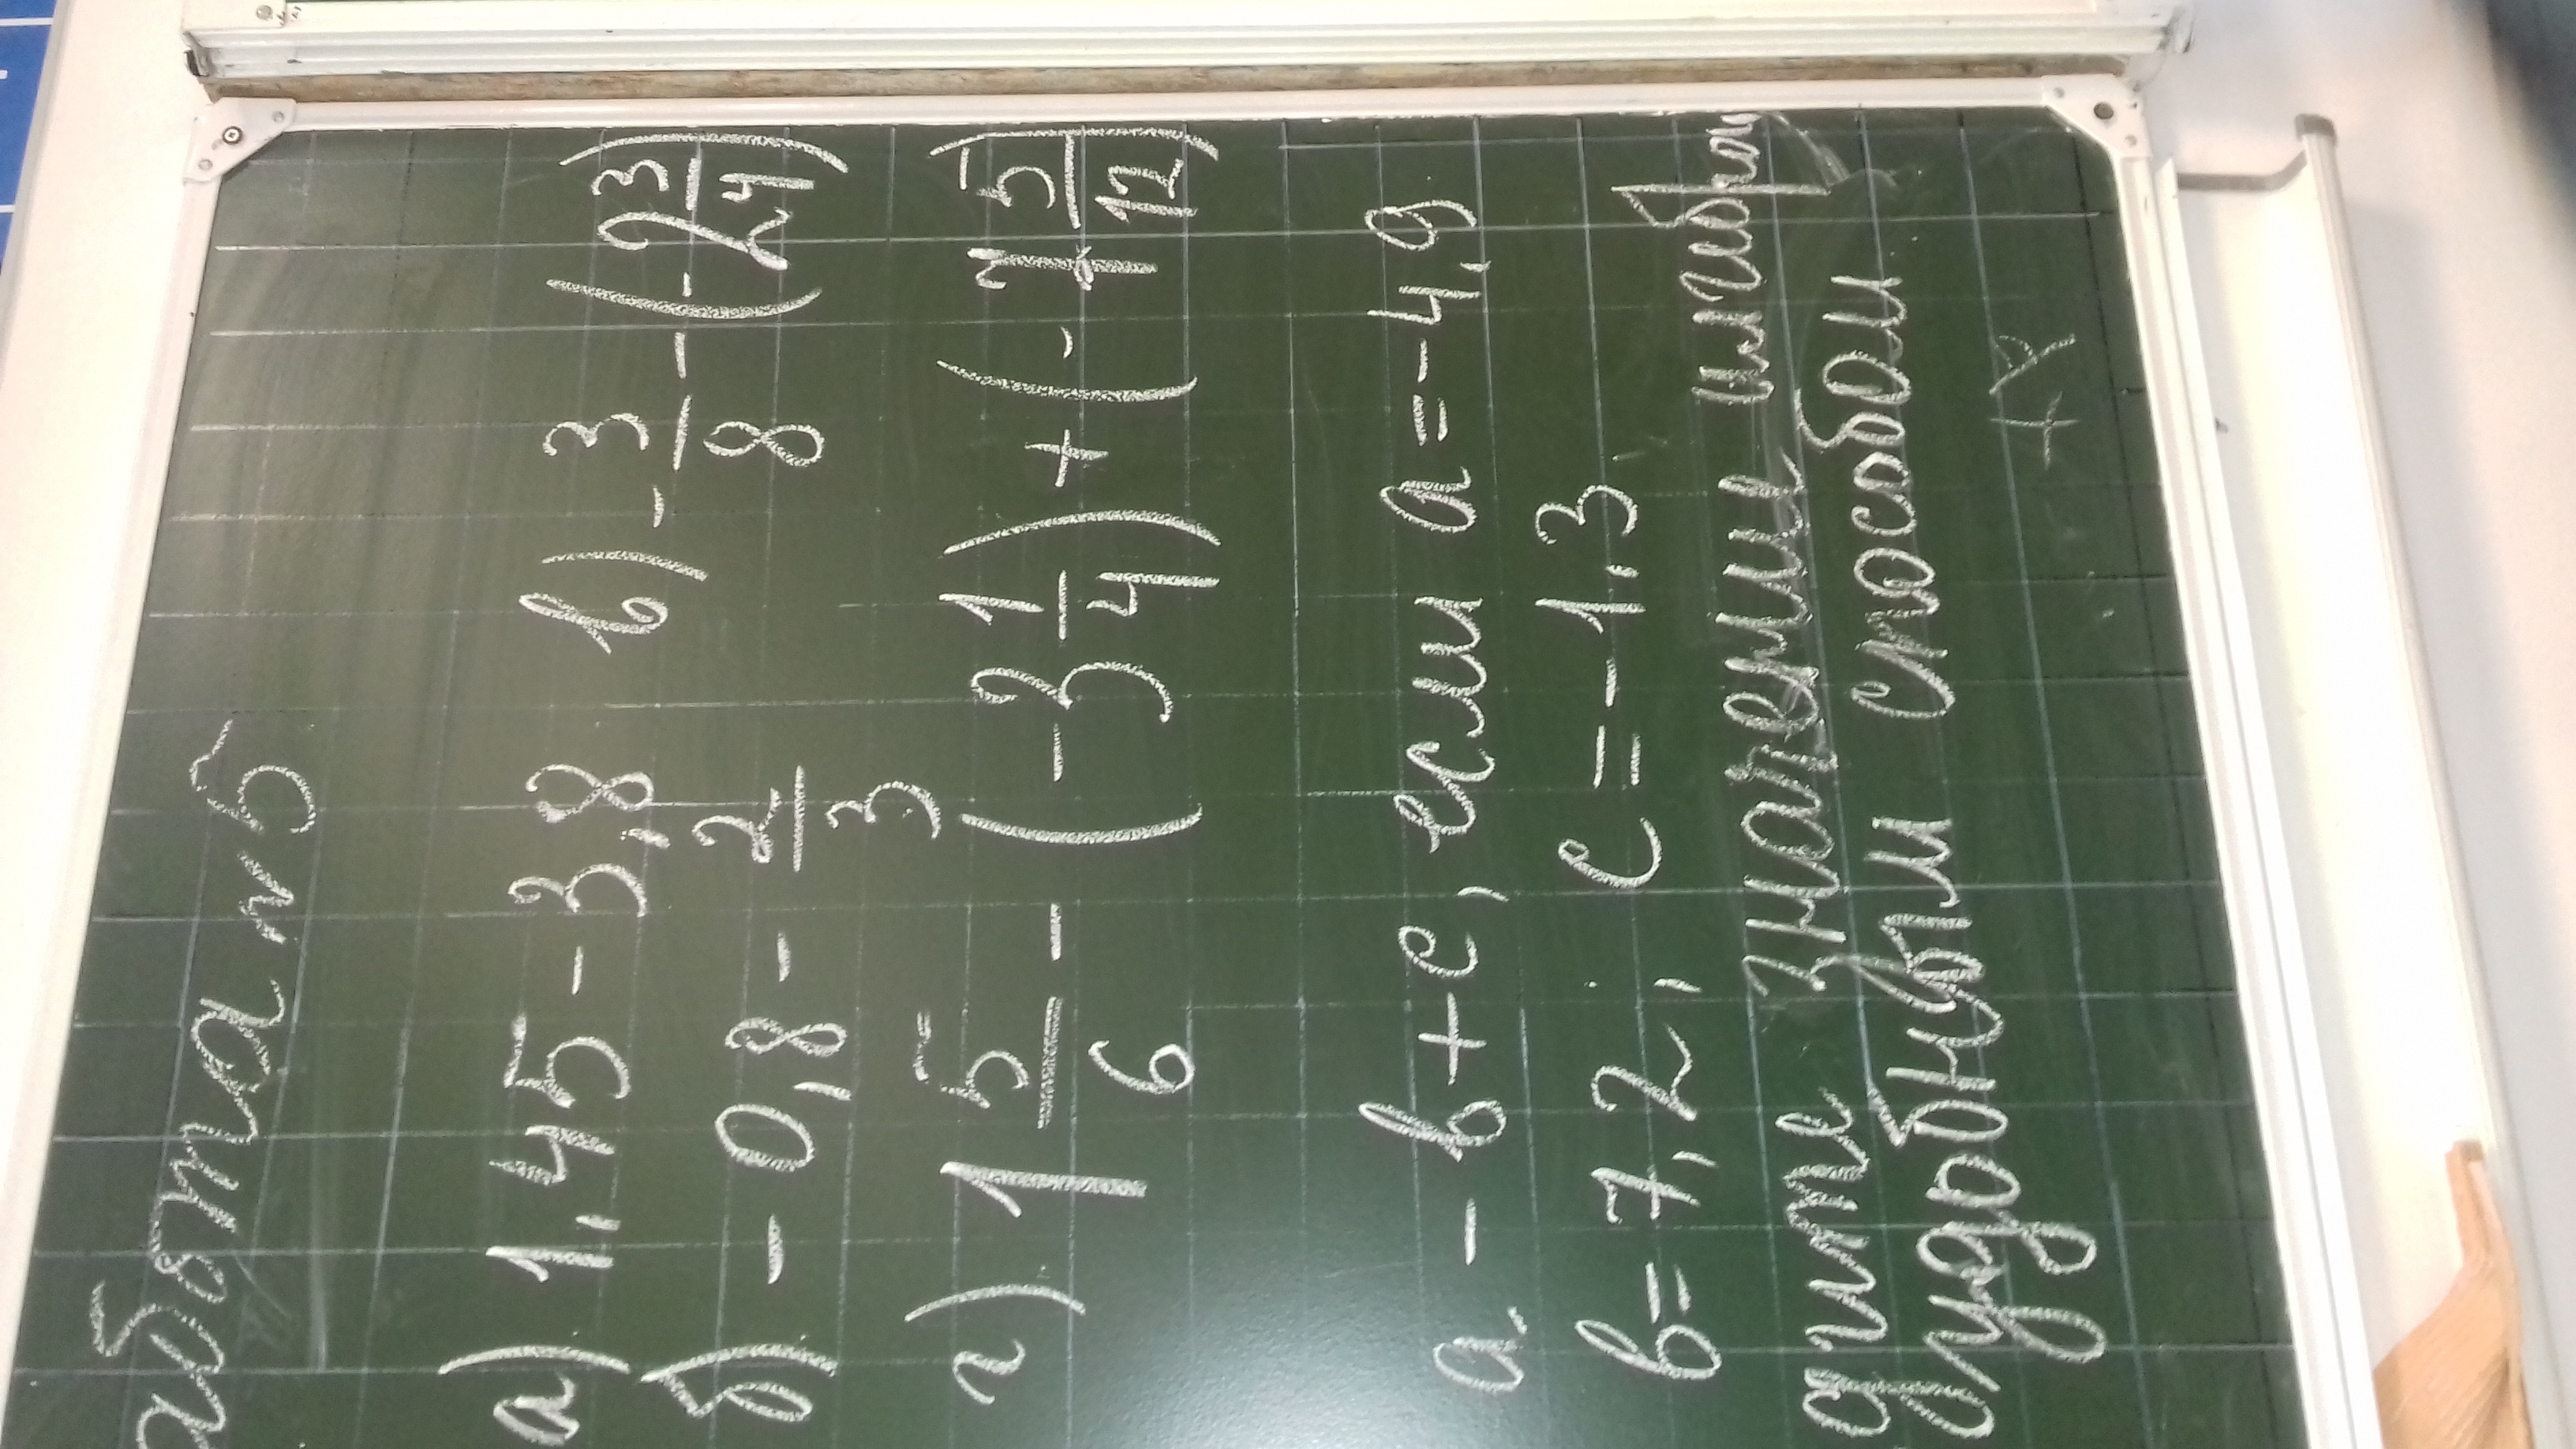 абота №5
а) 1,45 - 3,8
в) - 3/8 - (-2 3/4)
б) - 0,8 - 2/3
г) 1 5/6 - (-3 1/4) + (-7 5/12)
а - в + с, если а = -4,9
в = 7,2, с = -1,3
дите значении
удобным способом
+R